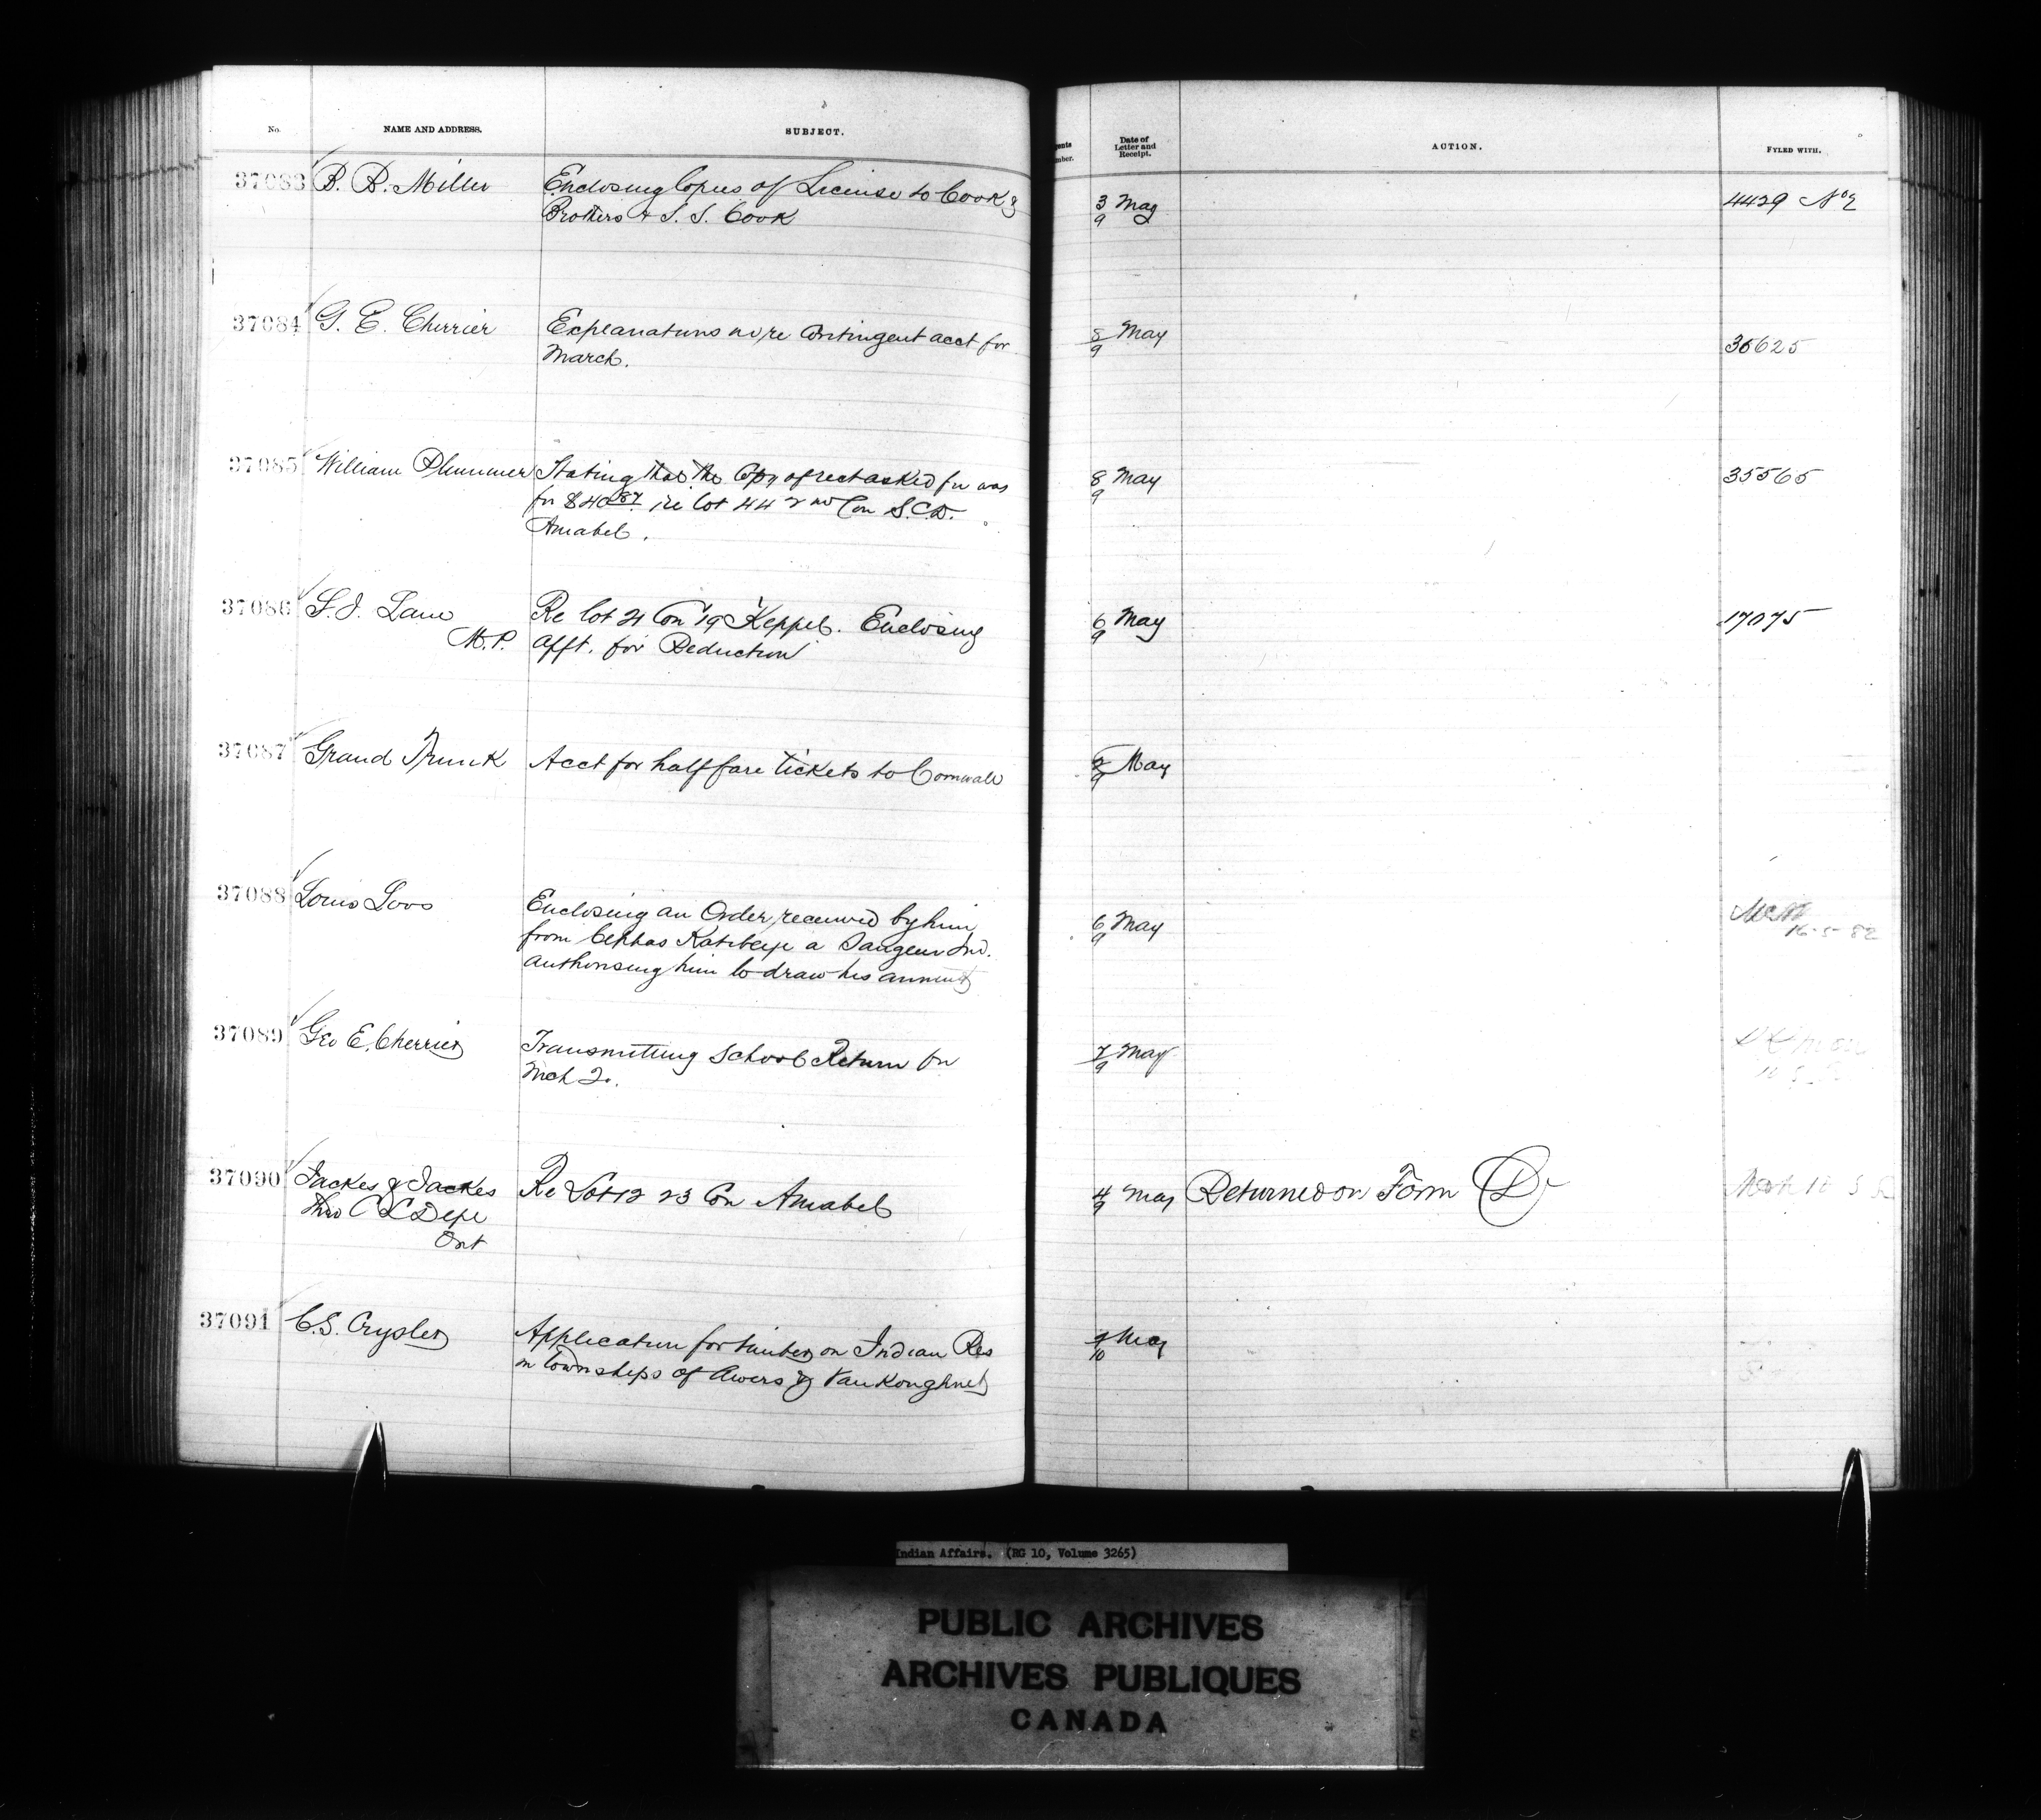 No. NAME AND ADDRESS. SUBJECT. Date of Letter and Receipt. ACTION. FYLED WITH.
37083 B. B. Miller Enclosing Copies of License to Cook & 3 May 4429 No 2
Brothers & S. S. Cook 9
37084 G. E. Cherrier Explanations re contingent acct for 8 May 36625
March. 9
37085 William Plummer Stating that the Copy of rect asked for was 8 May 35565
for $40 87 re lot 44 2nd Con S.C.D. 9
Amabel.
37086 S. J. Lane Re lot 21 Con 19 Keppel. Enclosing 6 May 17075
M.P. afft. for Reduction 9
37087 Grand Trunk Acct for half fare tickets to Cornwall May
9
37088 Louis Loos Enclosing an Order received by him 6 May
from Cephas a Saugeen Ind. 9 16-5-82
authorising him to draw his annuity
37089 Geo E. Cherrier Transmitting School Return for 7 May
Mch 2. 9
37090 Jackes & Jackes Re Lot 12 23 Con Amabel 4 May Returned on Form D
Thro C L Dept 9
Ont
37091 C.S. Crysler Application for timber on Indian Res 9 May
in townships of & VanKoughnet 10
Indian Affairs. (RG 10, Volume 3265)
PUBLIC ARCHIVES
ARCHIVES PUBLIQUES
CANADA